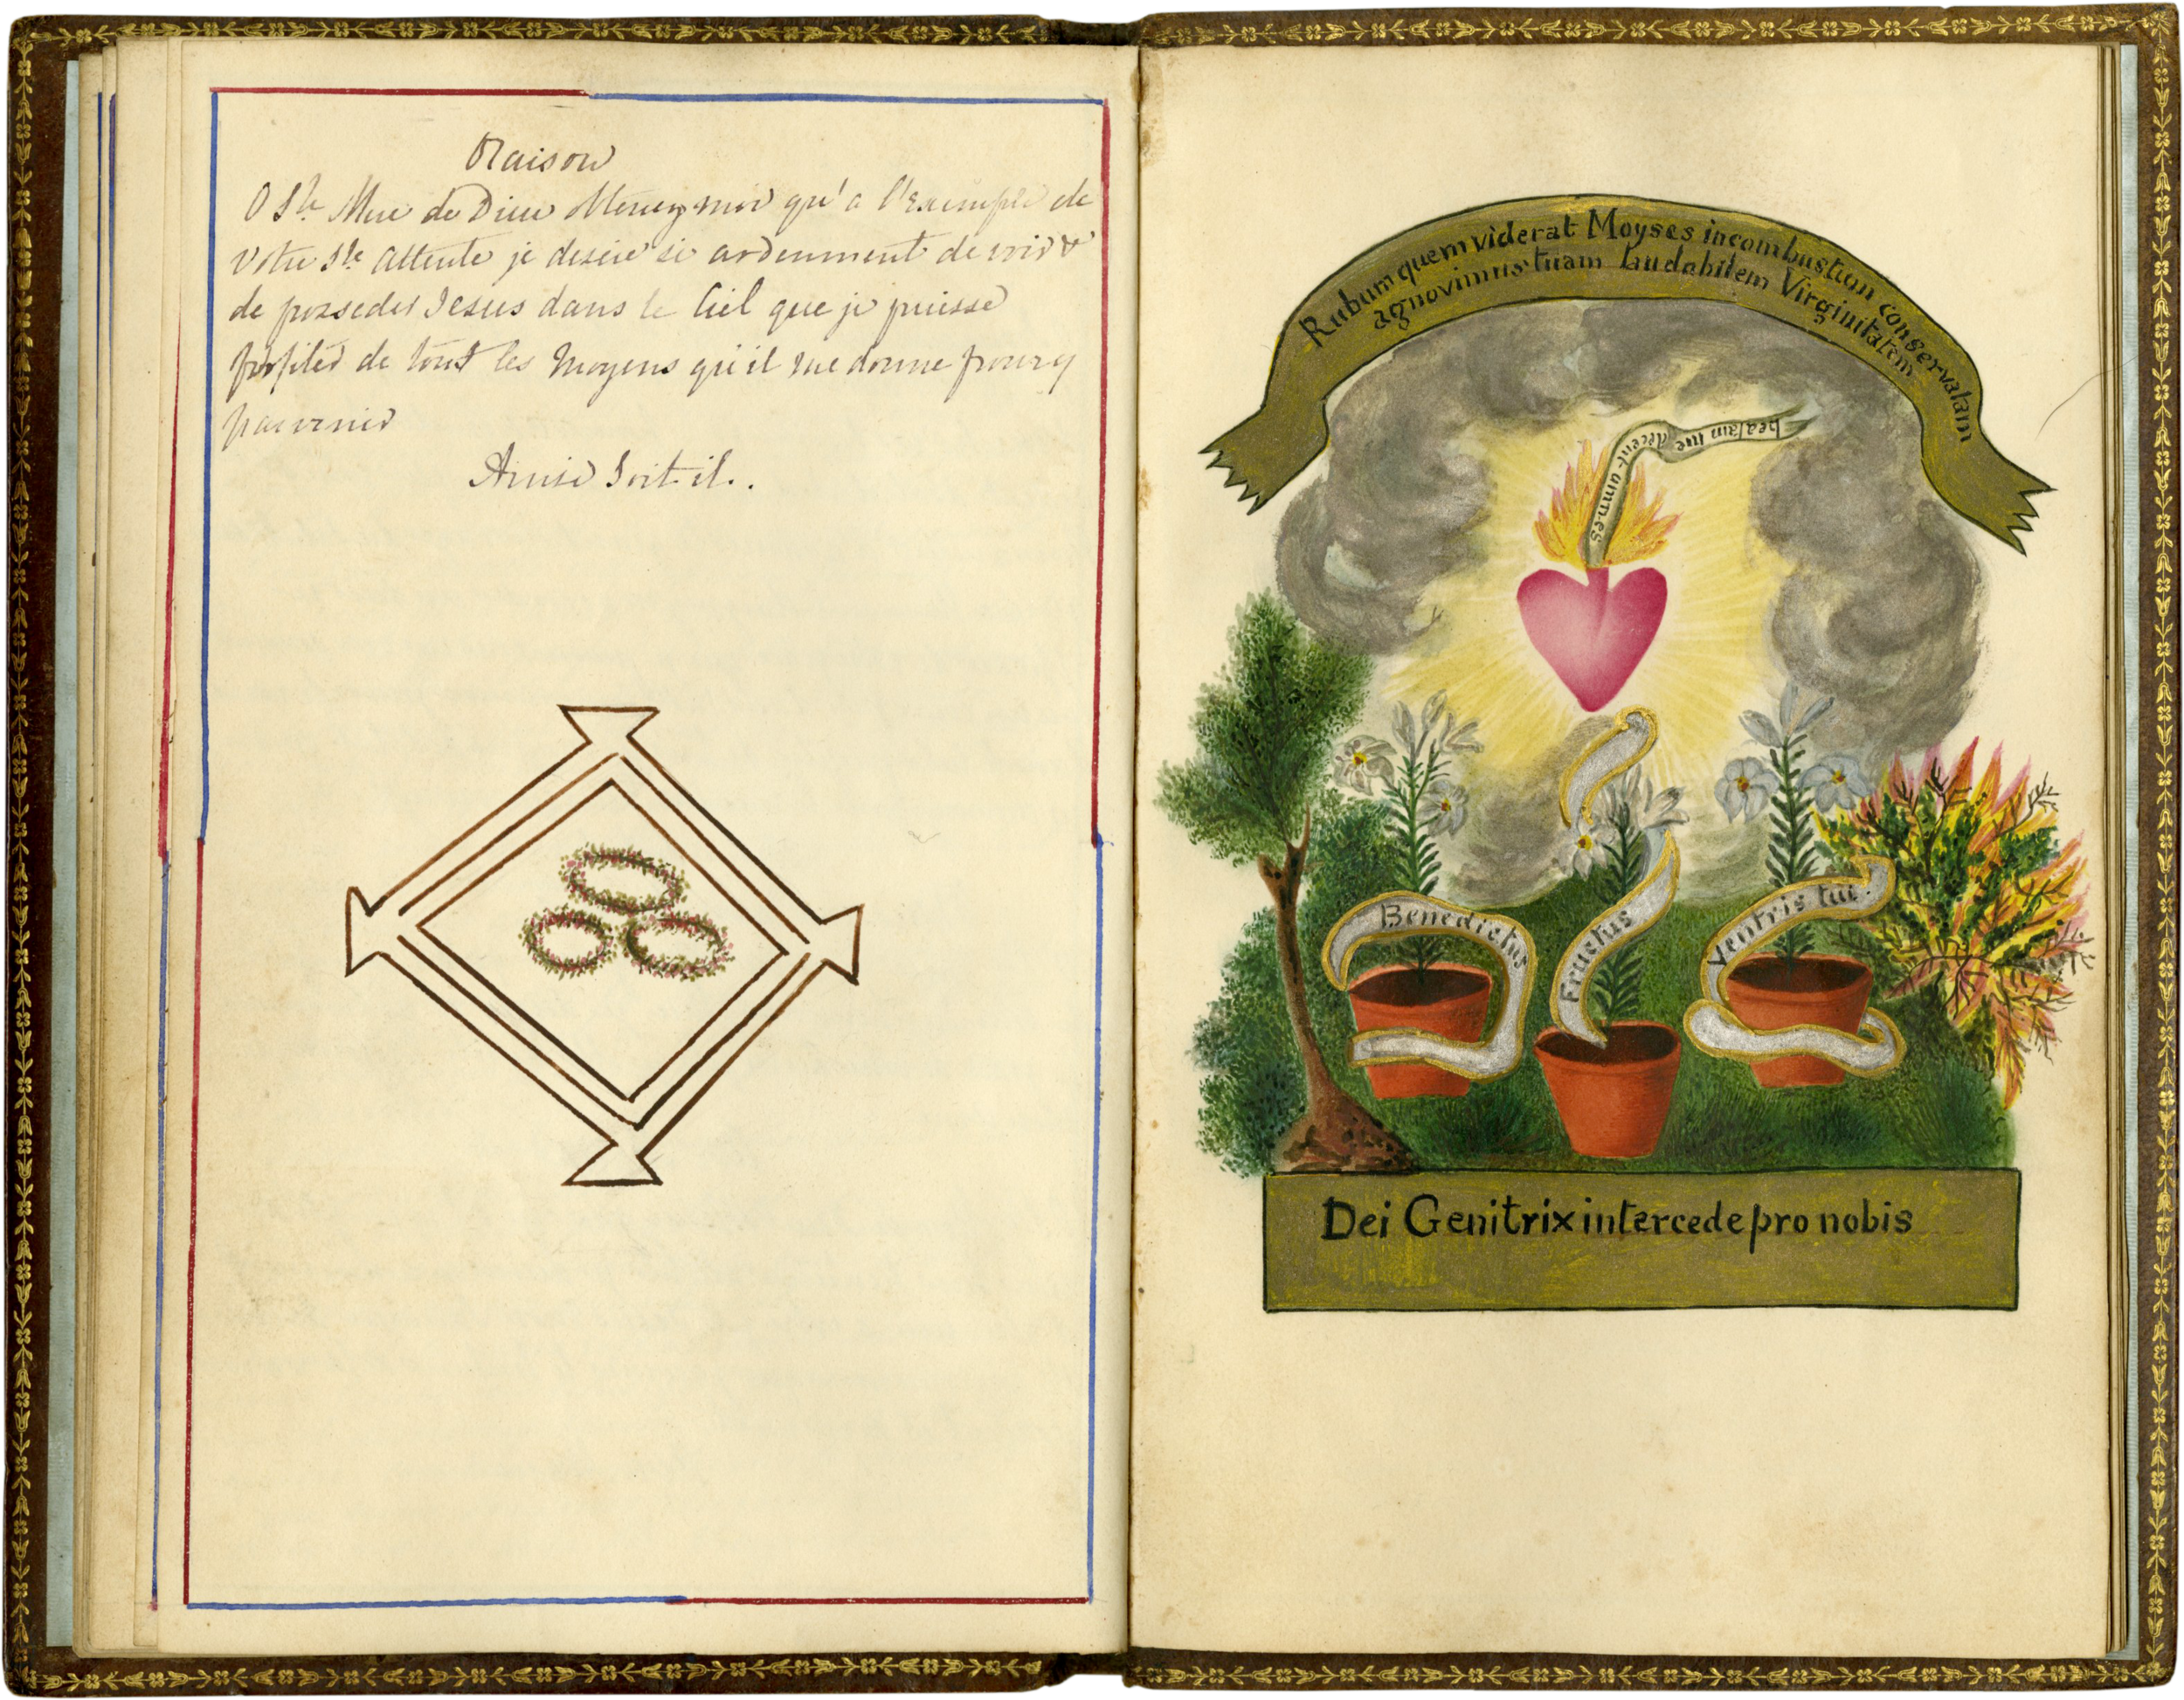 Oraison
O Ste Mere de Dieu obtenez moi qu'a l'Exemple de
Votre Ste attente je desire si ardemment de voir &
de posseder Jesus dans le Ciel que je puisse
profiter de tout les Moyens qu'il me donne pour y
parvenir
Ainsi Soit il.
Rubum quem viderat Moyses incombustum conservatam
agnovimus tuam laudabilem Virginitatem
beatam me dicent omnes
Benedictus
Fructus
Ventris tui.
Dei Genitrix intercede pro nobis